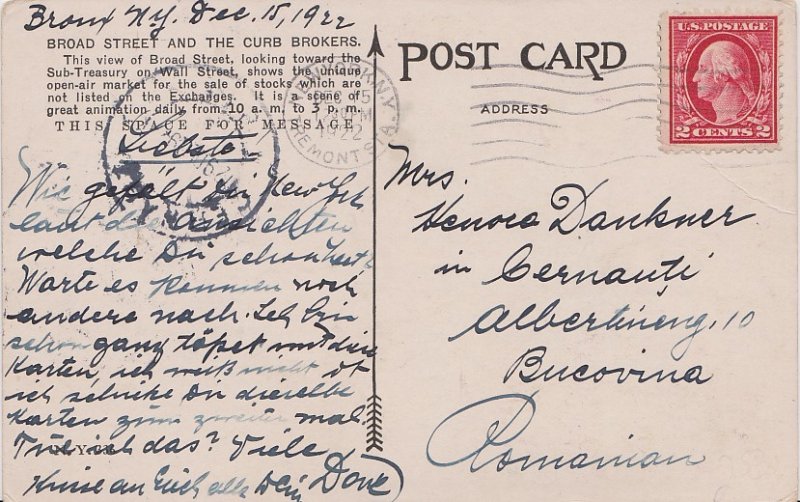 Bronx N.Y. Dec. 15, 1922
BROAD STREET AND THE CURB BROKERS.
This view of Broad Street, looking toward the
Sub-Treasury on Wall Street, shows the unique
open-air market for the sale of stocks which are
not listed on the Exchanges. It is a scene of
great animation daily from 10 a. m. to 3 p. m.
THIS SPACE FOR MESSAGE
Liebste
Wie gefält Dir New York
laut die Ansichten
welche Du schon hast?
Warte es kommen noch
andere nach. Ich bin
schon ganz töpet mit die
Karten, ich weiß nicht ob
ich schike Dir dieselbe
Karten zum zweiten mal.
Tue ich das? Viele
Küsse an Euch alle Dein
POST CARD
ADDRESS
U.S. POSTAGE
2 CENTS 2
N.Y.
1922
TREMONT STA.
Mrs.
Dankner
in Cernauți
Albertineng. 10
Bucovina
Romanian